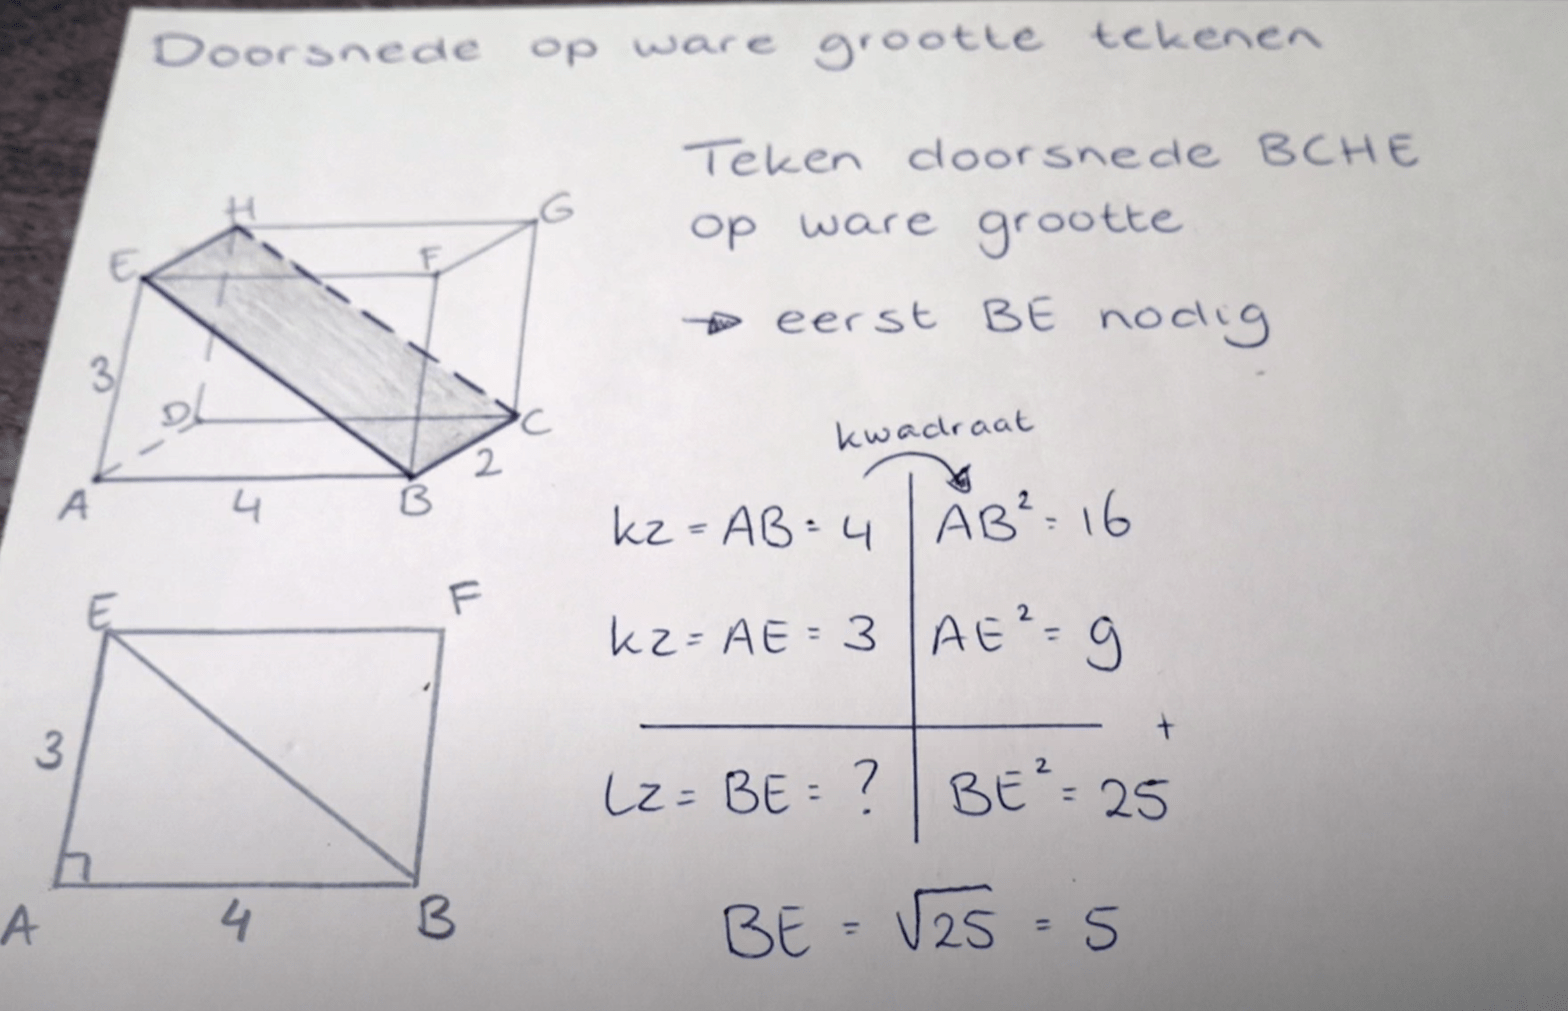 Doorsnede op ware grootte tekenen
Teken doorsnede BCHE
op ware grootte
→ eerst BE nodig
H
G
E
F
3
D
C
2
A
4
B
kwadraat
kz = AB = 4 | AB² = 16
kz = AE = 3 | AE² = 9
+
lz = BE = ? | BE² = 25
BE = √25 = 5
E
F
3
A
4
B